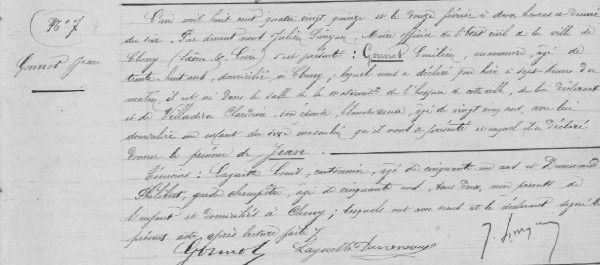 N° 7
Gonnot Jean
L'an mil huit cent quatre vingt quinze et le douze février à deux heures et demie
du soir. Par devant nous Julien Simyan, Maire officier de l'état civil de la ville de
Cluny (Saône & Loire) s'est présenté : Gonnot Emilien, manœuvre, âgé de
trente huit ans, domicilié à Cluny ; lequel nous a déclaré que hier à sept heures du
matin, il est né dans la salle de la maternité de l'hospice de cette ville, de lui déclarant
et de Claudine son épouse, blanchisseuse, âgée de vingt cinq ans, avec lui
domiciliée un enfant du sexe masculin qu'il nous a présenté et auquel il a déclaré
donner le prénom de Jean.
Témoins : Laguette Louis, cantonnier, âgé de cinquante un ans et
Philibert, garde champêtre, âgé de cinquante ans, tous deux, non parents de
l'enfant et domiciliés à Cluny ; lesquels ont avec nous et le déclarant signé le
présent acte, après lecture faite.
Gonnot Laguette J. Simyan